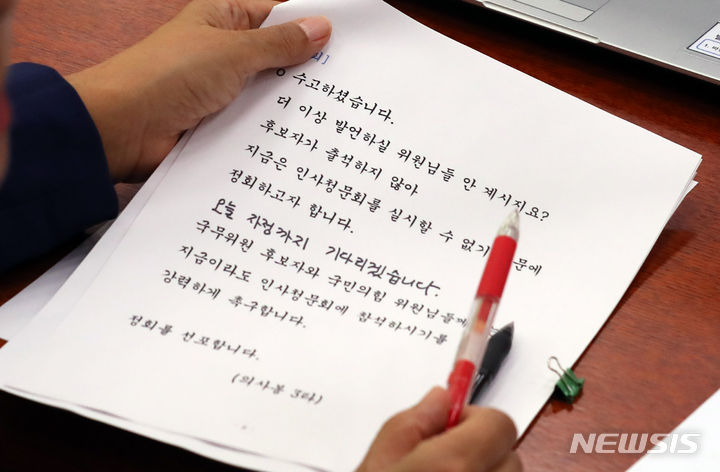 수고하셨습니다.
더 이상 발언하실 위원님들 안 계시지요?
후보자가 출석하지 않아
지금은 인사청문회를 실시할 수 없기 문에
정회하고자 합니다.
오늘 자정까지 기다리겠습니다.
국무위원 후보자와 국민의힘 위원님들께
지금이라도 인사청문회에 참석하시기를
강력하게 촉구합니다.
정회를 선포합니다.
(의사봉 3타)
NEWSIS